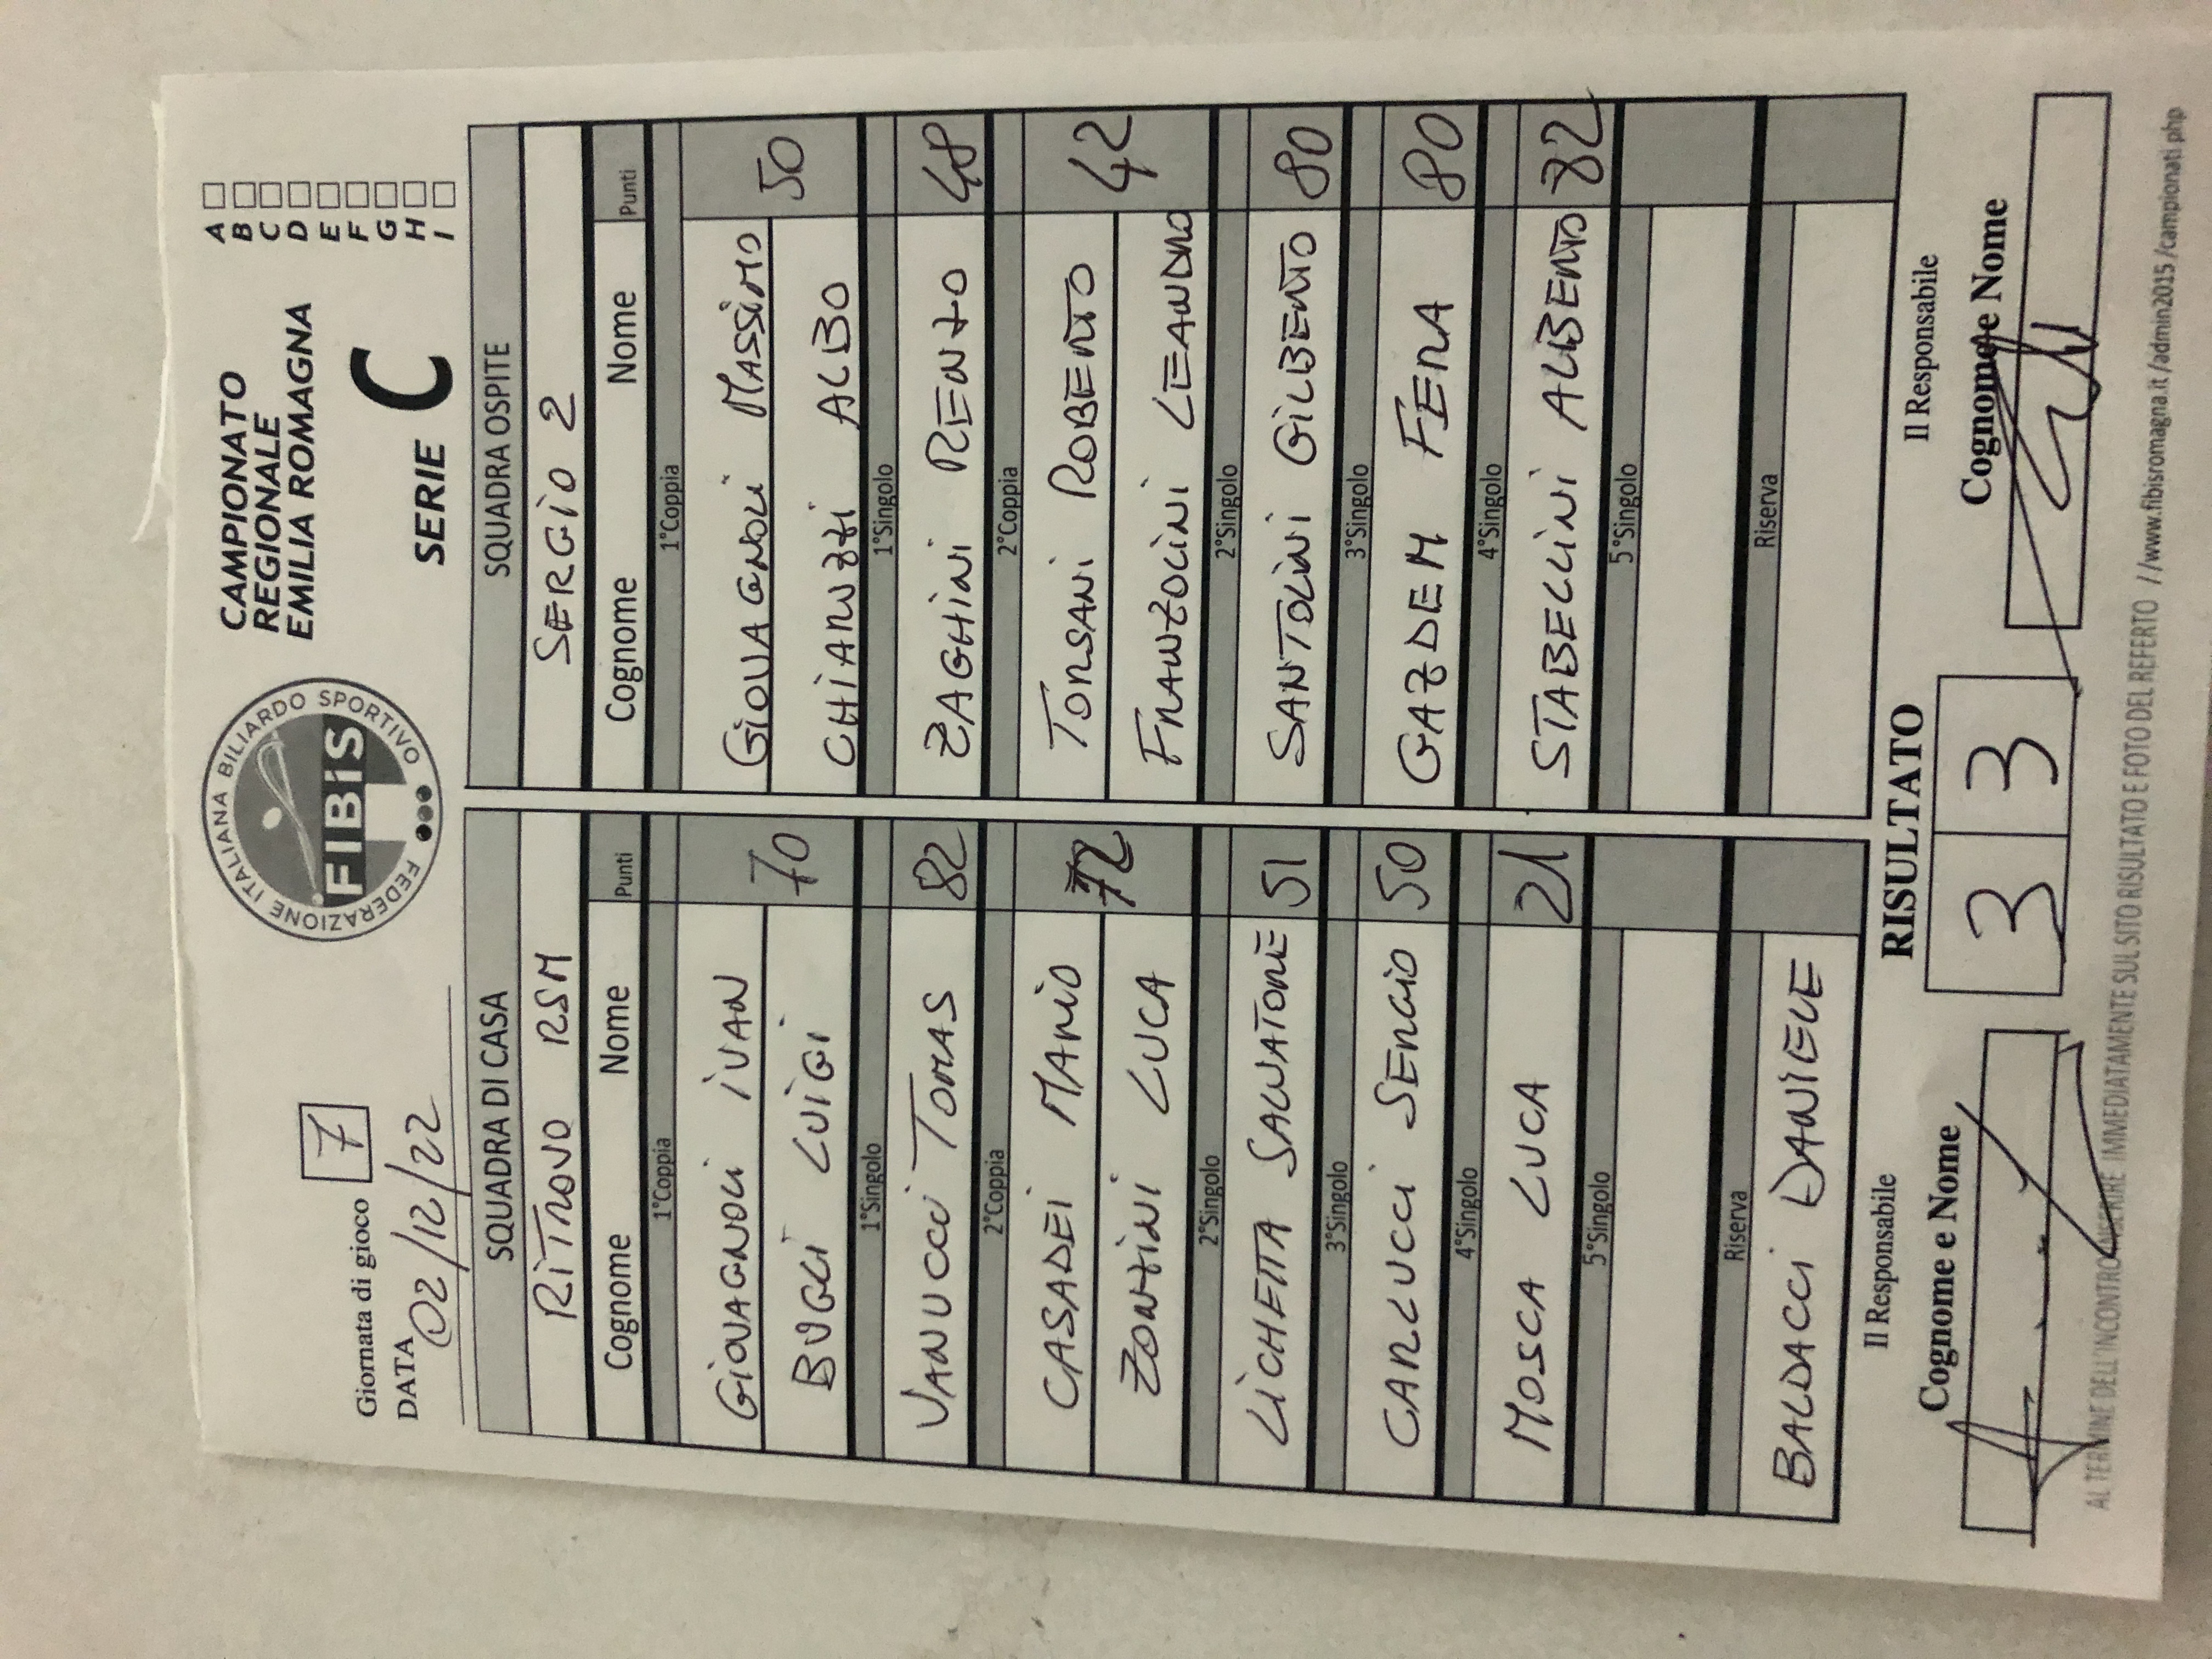 Giornata di gioco 7
DATA 02/12/22
FEDERAZIONE ITALIANA BILIARDO SPORTIVO
FIBiS
CAMPIONATO
REGIONALE
EMILIA ROMAGNA
SERIE C
A
B
C
D
E
F
G
H
I
SQUADRA DI CASA
RITROVO RSM
Cognome Nome Punti
1°Coppia
GIOVAGNOLI IVAN
BUGLI LUIGI
70
1°Singolo
VANUCCI TOMAS 82
2°Coppia
CASADEI MARIO
ZONZINI LUCA
72
2°Singolo
LICHETTA SALVATORE 51
3°Singolo
CARLUCCI SERGIO 50
4°Singolo
MOSCA LUCA 21
5°Singolo
Riserva
BALDACCI DANIELE
SQUADRA OSPITE
SERGIO 2
Cognome Nome Punti
1°Coppia
GIOVAGNOLI MASSIMO
CHIARUZZI ALBO
50
1°Singolo
ZAGHINI RENZO 48
2°Coppia
TORSANI ROBERTO
FRANZOLINI LEANDRO
42
2°Singolo
SANTOLINI GILBERTO 80
3°Singolo
GAZDEM FERA 80
4°Singolo
STABELLINI ALBERTO 82
5°Singolo
Riserva
Il Responsabile
Cognome e Nome
RISULTATO
3 3
Il Responsabile
Cognome e Nome
AL TERMINE DELL'INCONTRO INSERIRE IMMEDIATAMENTE SUL SITO RISULTATO E FOTO DEL REFERTO //www.fibisromagna.it/admin2015/campionati.php